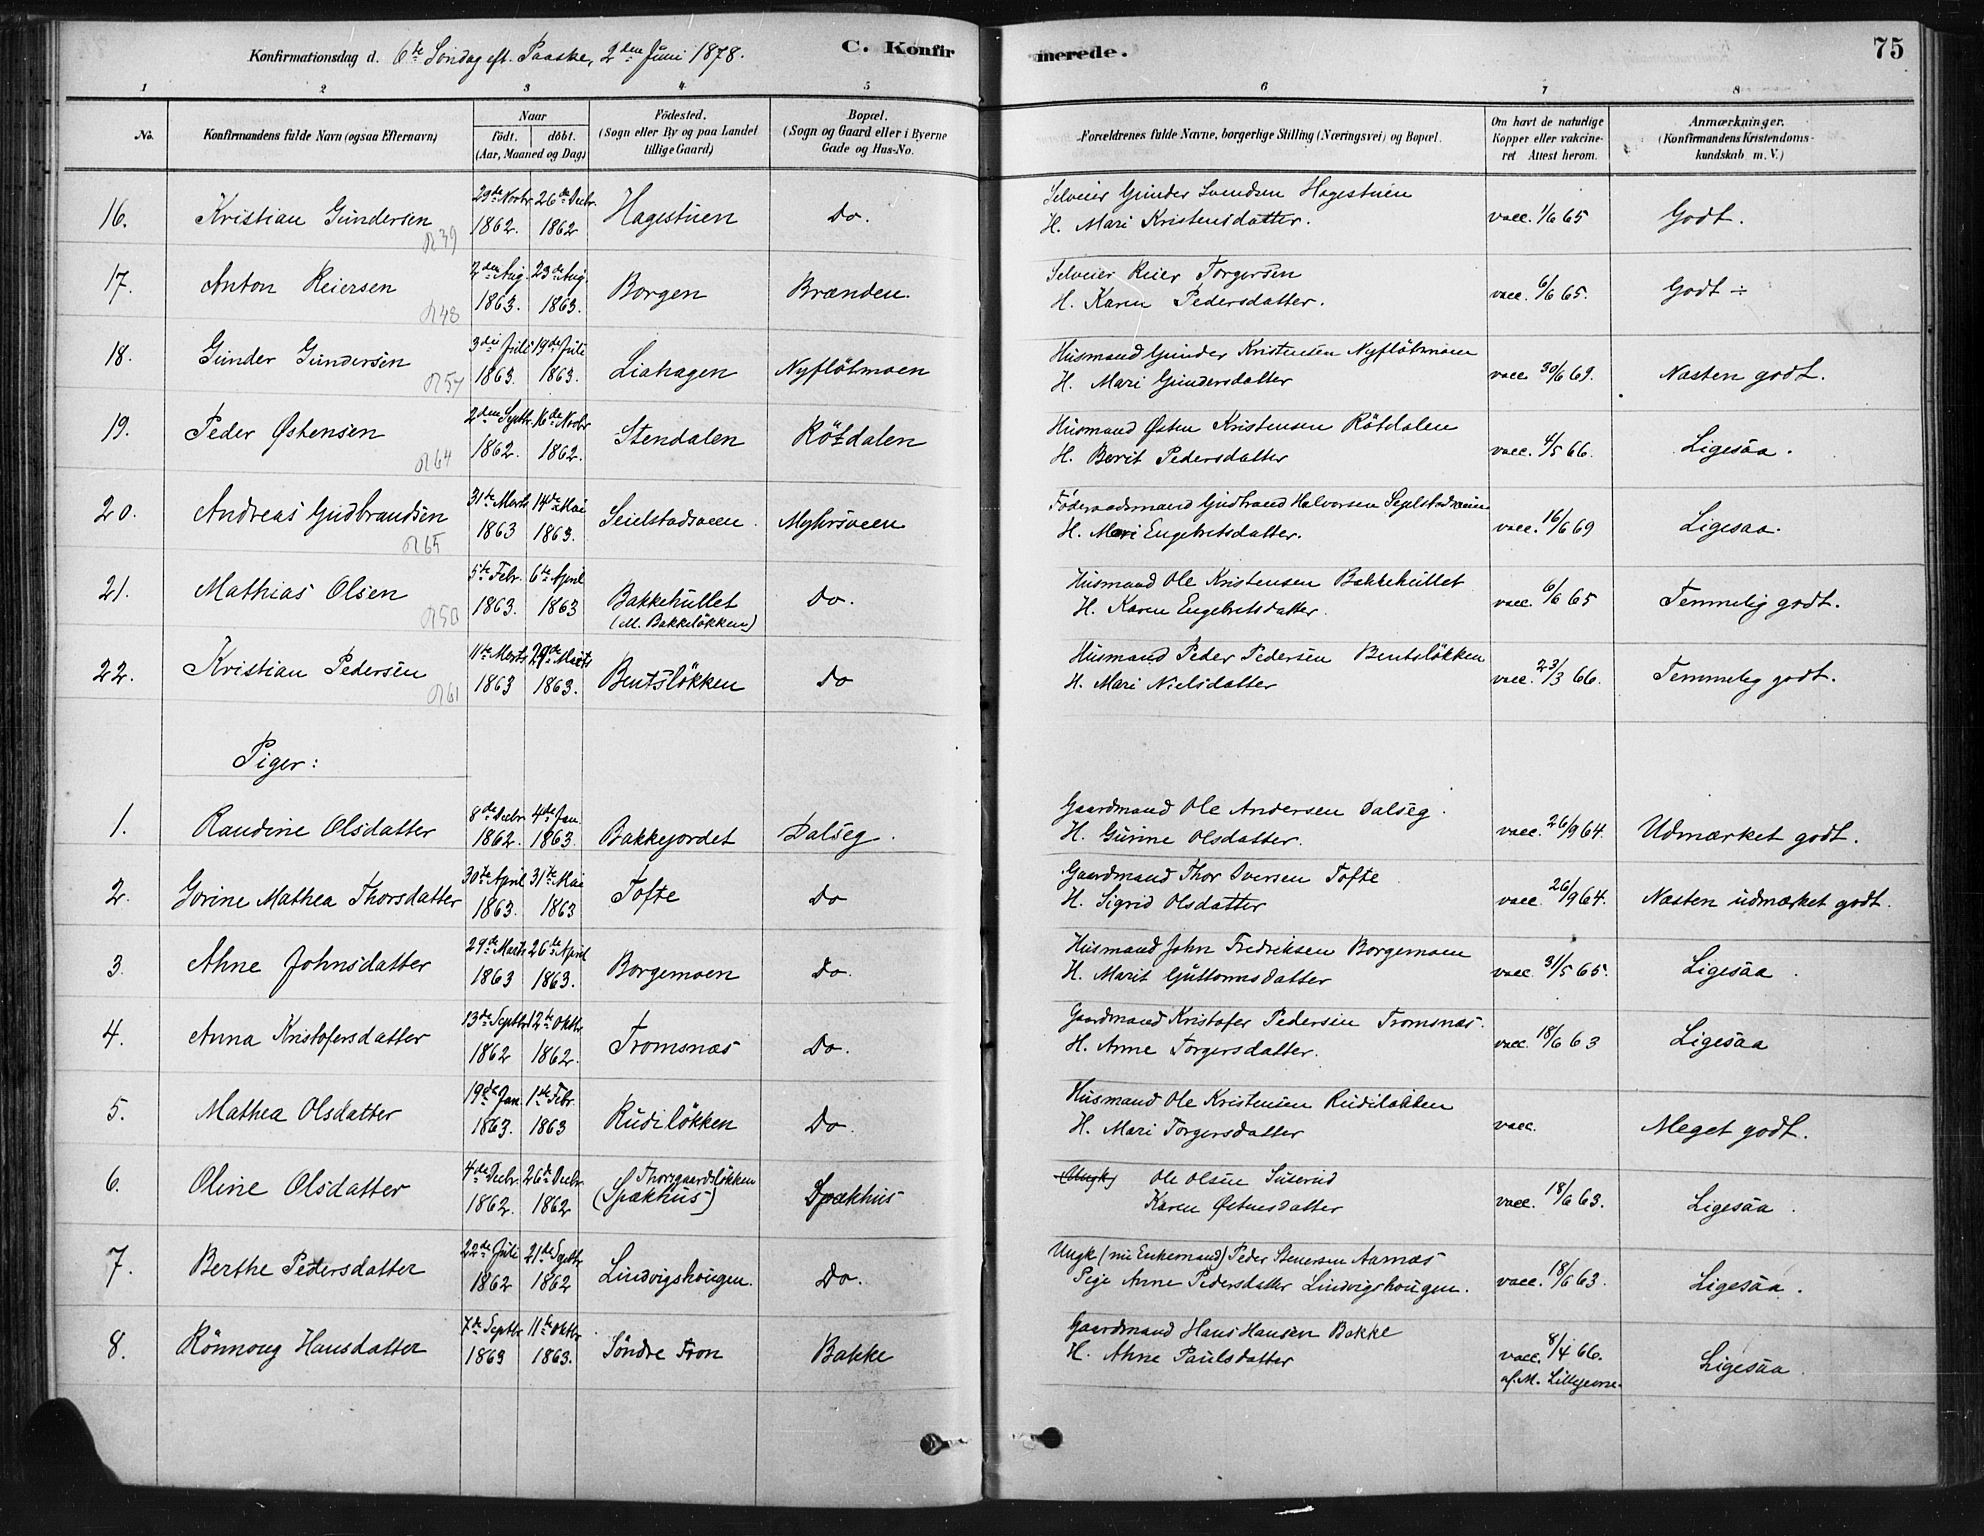 Konfirmationsdag d. 6te Søndag eft. Paaske, 2den Juni 1878.
C. Konfirmerede.
75
1 2 3 4 5 6 7 8
No.
Konfirmandens fulde Navn (ogsaa Efternavn)
Naar
født. døbt.
(Aar, Maaned og Dag)
Fødested.
(Sogn eller By og paa Landet
tillige Gaard)
Bopæl.
(Sogn og Gaard eller i Byerne
Gade og Hus-No.
Forældrenes fulde Navne, borgerlige Stilling (Næringsvei) og Bopæl.
Om havt de naturlige
Kopper eller vakcine-
ret Attest herom.
Anmærkninger.
(Konfirmandens Kristendoms-
kundskab m. V.)
16. Kristian Gundersen 39 29de Novbr 1862. 26de Decbr. 1862 Hagestuen Do. Selveier Gunder Svendsen Hagestuen
H. Mari Kristensdatter. vacc. 1/6 65 Godt.
17. Anton Reiersen 48 2den Aug. 1863. 23de Aug. 1863. Borgen Brænden. Selveier Reier Torgersen
H. Karen Pedersdatter. vacc. 6/6 65. Godt ÷
18. Gunder Gundersen 57 3die Juli 1863. 19de Juli 1863. Liahagen Nyfløtmoen Husmand Gunder Kristensen Nyfløtmoen
H. Mari Gundersdatter vacc. 30/6 69. Næsten godt.
19. Peder Østensen 64 2den Septbr. 1862. 16de Novbr 1862. Stendalen Røtdalen Husmand Østen Kristensen Røtdalen
H. Berit Pedersdatter vacc. 4/5 66. Ligesaa.
20. Andreas Gudbrandsen 65 31te Marts 1863 14de Mai 1863. Seielstadsveen. Myhrsveen Føderaadsmand Gudbrand Halvorsen Segelstadsveen
H. Mari Engebretsdatter. vacc. 16/6 69 Ligesaa.
21. Mathias Olsen 50 5te Febr. 1863. 6te April 1863 Bakkehullet
(M. Bakkeløkken) Do. Husmand Ole Kristensen Bakkehullet
H. Karen Engebretsdatter. vacc. 6/6 65 Temmelig godt.
22. Kristian Pedersen 61 11te Marts 1863 29de Marts 1863. Bentsløkken Do Husmand Peder Pedersen Bentsløkken
H. Mari Nielsdatter vacc. 23/3 66. Temmelig godt.
Piger:
1. Randine Olsdatter 8de Decbr 1862. 4de Jan 1863. Bakkejordet Dalseg. Gaardmand Ole Andersen Dalseg.
H. Gurine Olsdatter. vacc. 26/9 64. Udmærket godt.
2. Gorine Mathea Thorsdatter 30te April 1863. 31te Mai 1863 Tofte Do Gaardmand Thor Iversen Tofte
H. Sigrid Olsdatter vacc 26/9 64. Næsten udmærket godt.
3. Ahne Johnsdatter 29de Marts 1863 26de April 1863. Borgemoen Do. Husmand John Fredriksen Borgemoen
H. Marit Guttormsdatter vacc. 31/5 65. Ligesaa.
4. Anna Kristofersdatter 13de Septbr 1862 12te Oktbr. 1862. Tromsnæs Do. Gaardmand Kristofer Pedersen Tromsnæs.
H. Anne Torgersdatter. vacc. 18/6 63 Ligesaa
5. Mathea Olsdatter 19de Jan. 1863. 1ste Febr. 1863 Rudiløkken Do. Husmand Ole Kristensen Rudiløkken
H. Mari Torgersdatter vacc. Meget godt.
6. Oline Olsdatter 4de Decbr. 1862. 26de Decbr. 1862 Thorsgaardsløkken
(Spækhus) Spækhus (Ungk) Ole Olsen Suserud
Karen Østensdatter vacc. 18/6 63. Ligesaa.
7. Berthe Pedersdatter 22de Juli 1862 21de Septbr 1862 Lindvigshougen. Do. Ungk (nu Enkemand) Peder Stenersen Aarnæs
Pige Anne Pedersdatter Lindvigshougen. vacc. 18/6 63. Ligesaa.
8. Rönnoug Hansdatter 7de Septbr 1863 11te Oktbr. 1863. Søndre Fron Bakke Gaardmand Hans Hansen Bakke
H. Ahne Paulsdatter vacc. 8/4 66.
af M. Ligesaa.